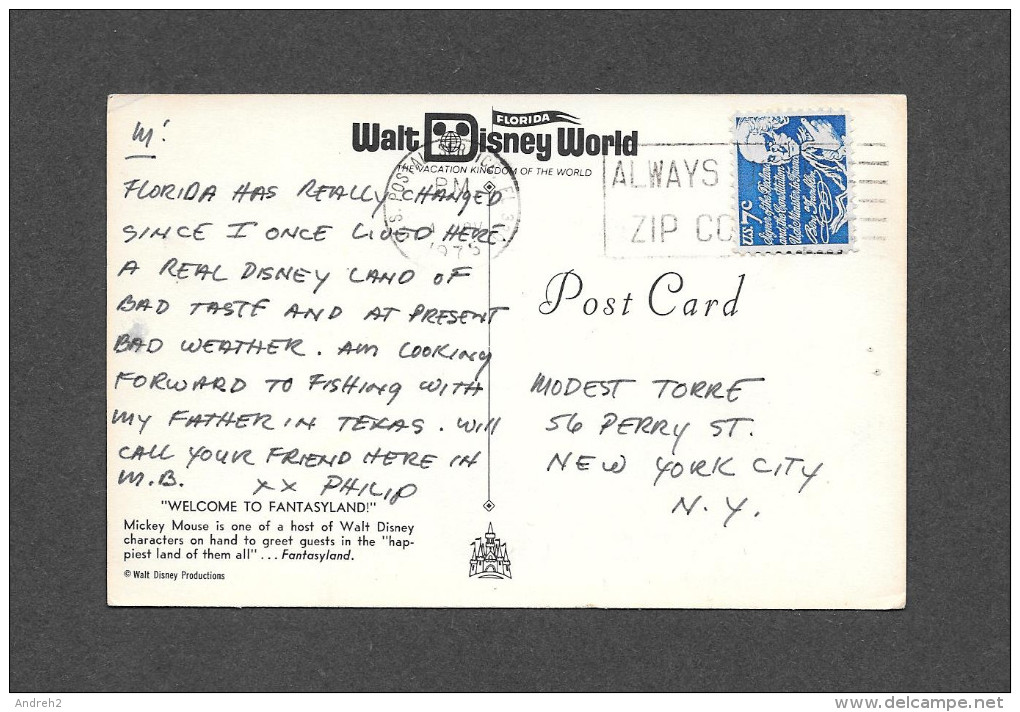 M!
FLORIDA
Walt Disney World
THE VACATION KINGDOM OF THE WORLD
FLORIDA HAS REALLY CHANGED
SINCE I ONCE LIVED HERE.
A REAL DISNEY LAND OF
BAD TASTE AND AT PRESENT
BAD WEATHER. AM LOOKING
FORWARD TO FISHING WITH
MY FATHER IN TEXAS. WILL
CALL YOUR FRIEND HERE IN
M.B. XX PHILIP
"WELCOME TO FANTASYLAND!"
Mickey Mouse is one of a host of Walt Disney
characters on hand to greet guests in the "hap-
piest land of them all" ... Fantasyland.
© Walt Disney Productions
PM
ALWAYS
ZIP CO
U.S. 7c
Signer of the Declara
and the Constitution
Benj Franklin
Post Card
MODEST TORRE
56 PERRY ST.
NEW YORK CITY
N.Y.
Andreh2
www.delcampe.net